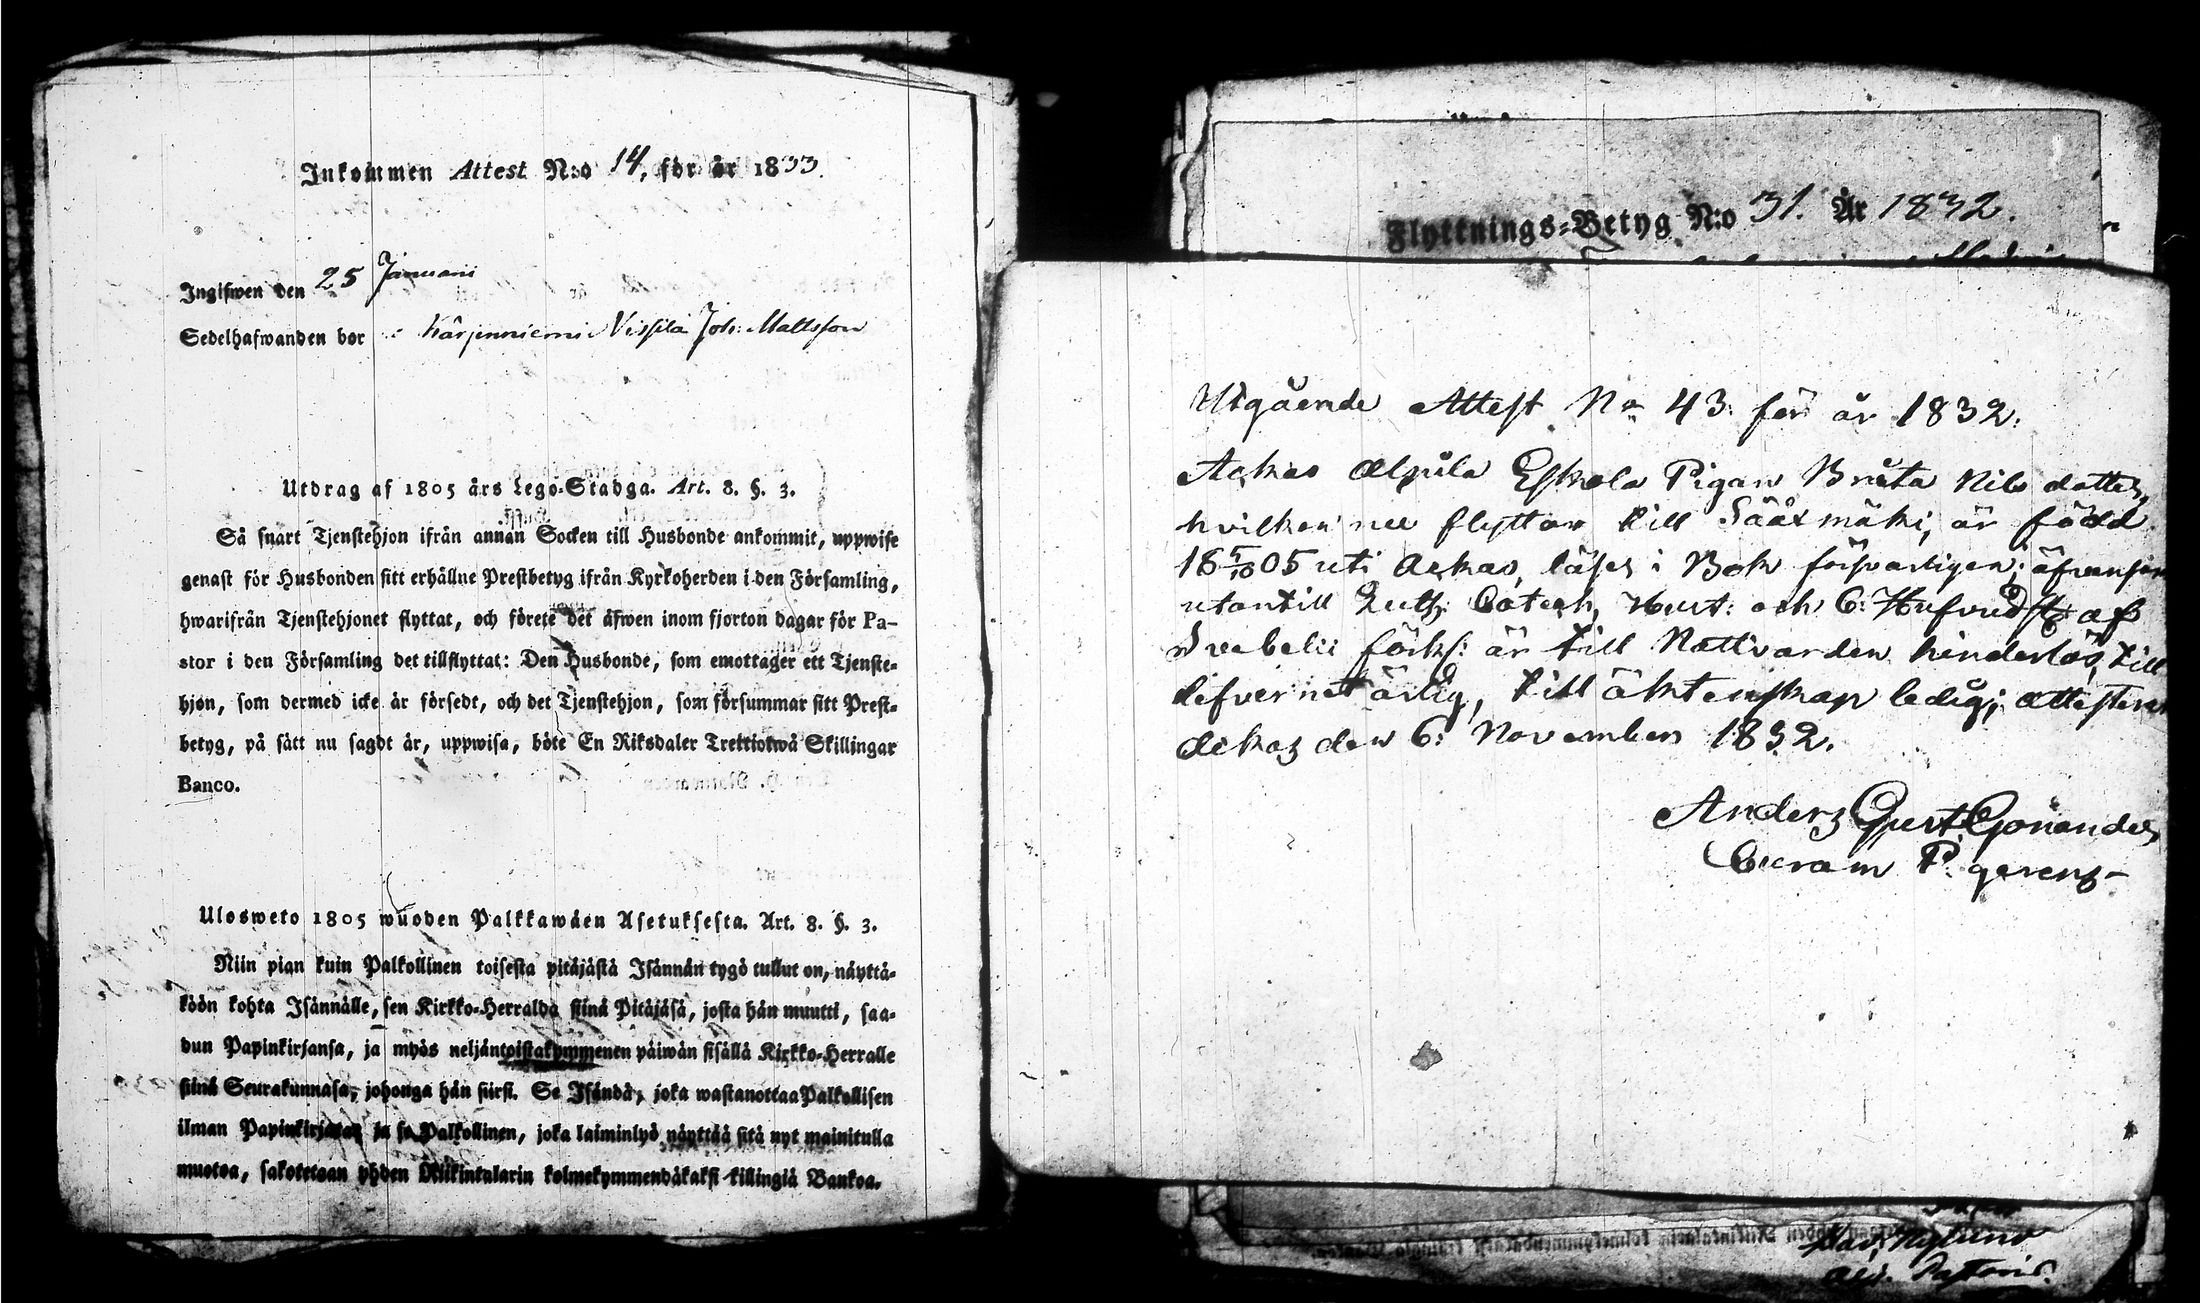 Inkommen Attest N:o 14, för år 1833.
Ingifwen den 25 Januari
Sedelhafwanden bor i Kärjenniemi Nissilä Joh: Mattsson
Utdrag af 1805 års Lego-Stadga. Art. 8. §. 3.
Så snart Tjenstehjon ifrån annan Socken till Husbonde ankommit, uppwise
genast för Husbonden sitt erhållne Prestbetyg ifrån Kyrkoherden i den Församling,
hwarifrån Tjenstehjonet flyttat, och förete det äfwen inom fjorton dagar för Pa-
stor i den Församling det tillflyttat: Den Husbonde, som emottager ett Tjenste-
hjon, som dermed icke är försedt, och det Tjenstehjon, som försummar sitt Prest-
betyg, på sätt nu sagdt är, uppwisa, böte En Riksdaler Trettiotwå Skillingar
Banco.
Ulosweto 1805 wuoden Palkkawäen Asetuksesta. Art. 8. §. 3.
Niin pian kuin Palkollinen toisesta pitäjästä Isännän tygö tullut on, näyttä-
köön kohta Isännälle, sen Kirkko-Herralda siinä Pitäjäsä, josta hän muutti, saa-
dun Papinkirjansa, ja myös neljäntoistakymmenen päiwän sisällä Kirkko-Herralle
siinä Seurakunnasa, johonga hän siirsi. Se Isändä, joka wastanottaa Palkollisen
ilman Papinkirjatta ja se Palkollinen, joka laiminlyö näyttää sitä nyt mainitulla
muotoa, sakotetaan yhden Riikintalarin kolmekymmendäkaksi killingiä Bankoa.
Flyttnings-Betyg N:o 31. År 1832.
Utgående Attest No 43 för år 1832.
Ackas Alpula Eskola Pigan Breta Nils dotter,
hvilken nu flyttar till Sääxmäki, är född
18 5/10 05 uti Ackas, läser i Bok försvarligen; äfvensom
utantill Luth: Catech, Hust: och 6: Hufvudst: af
Svebelii förks: är till Nattvarden hinderlös, till
lefvernet ärlig, till äktenskap ledig; attesteras
Ackas den 6: November 1832.
Anders Gust. Gönander,
Curam P. gerens-
Nylund